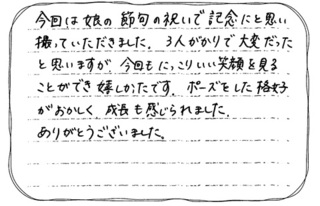 今回は娘の節句の祝いで記念にと思い
撮っていただきました。3人がかりで大変だった
と思いますが今回もにっこりいい笑顔を見る
ことができ嬉しかったです。ポーズをした格好
がおかしく成長も感じられました。
ありがとうございました。